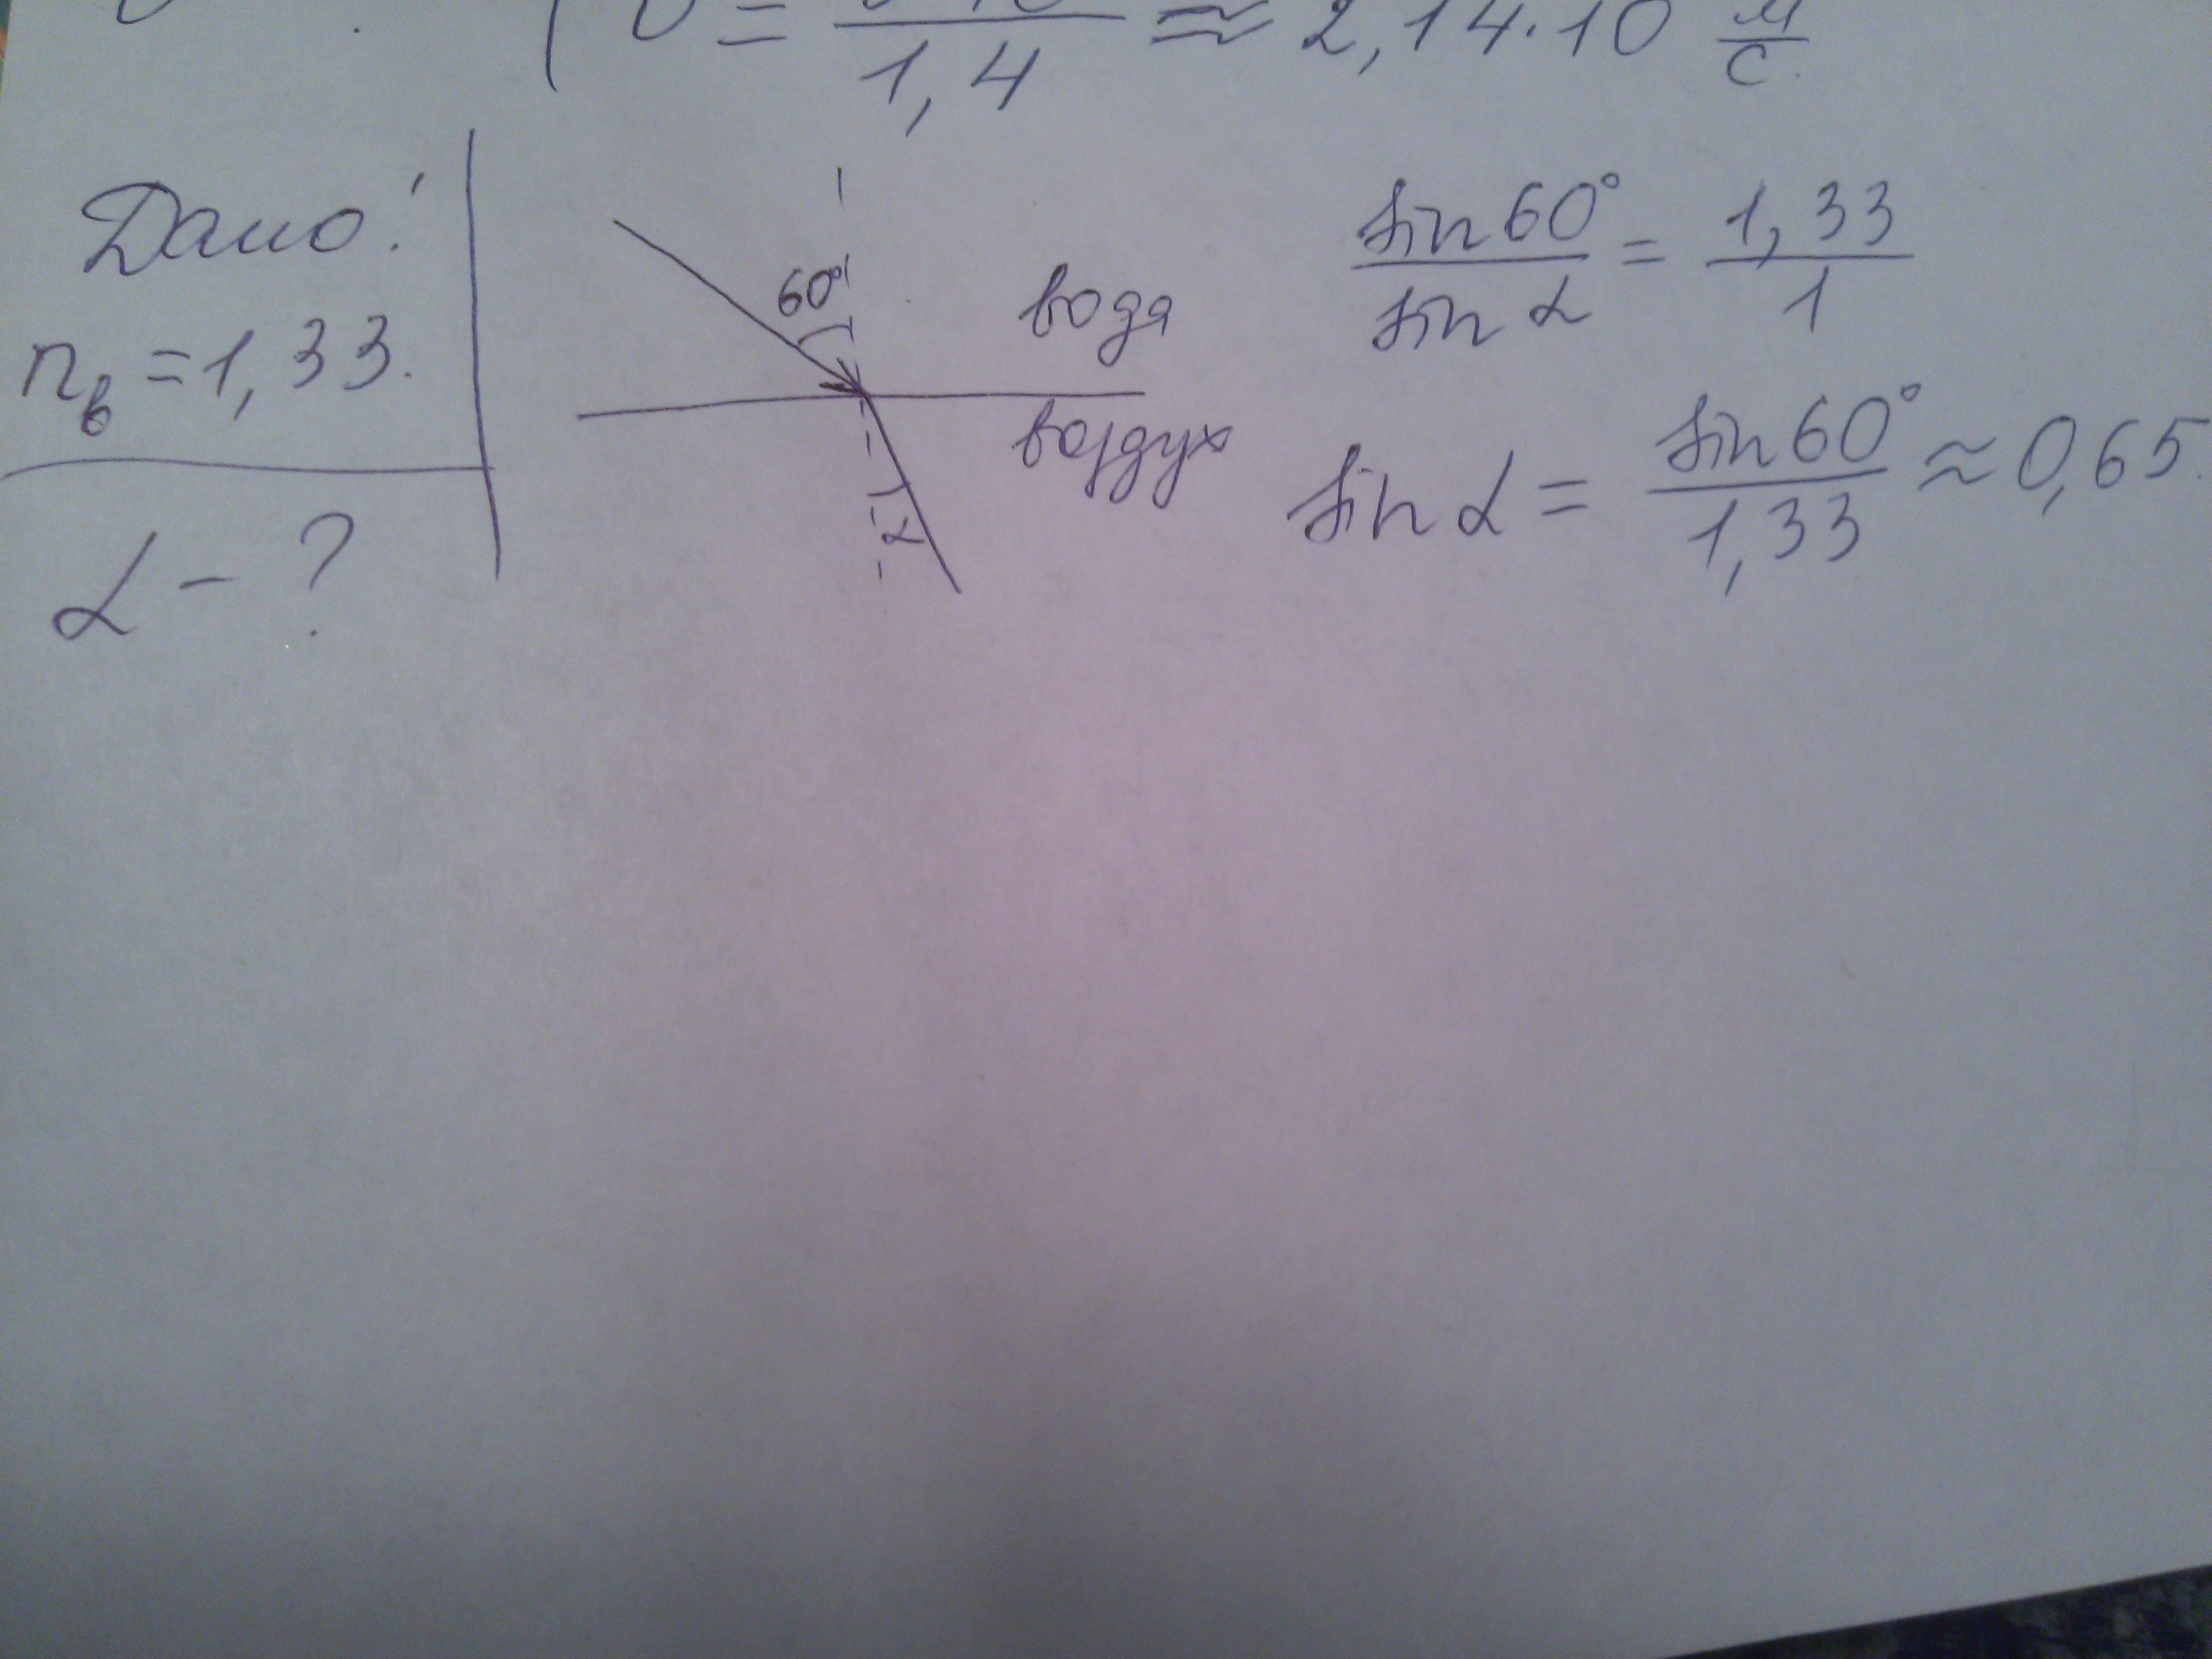 υ = / 1,4 ≈ 2,14·10 м/с
Дано:
nв = 1,33.
α - ?
60°
вода
воздух
α
sin 60° / sin α = 1,33 / 1
sin α = sin 60° / 1,33 ≈ 0,65.